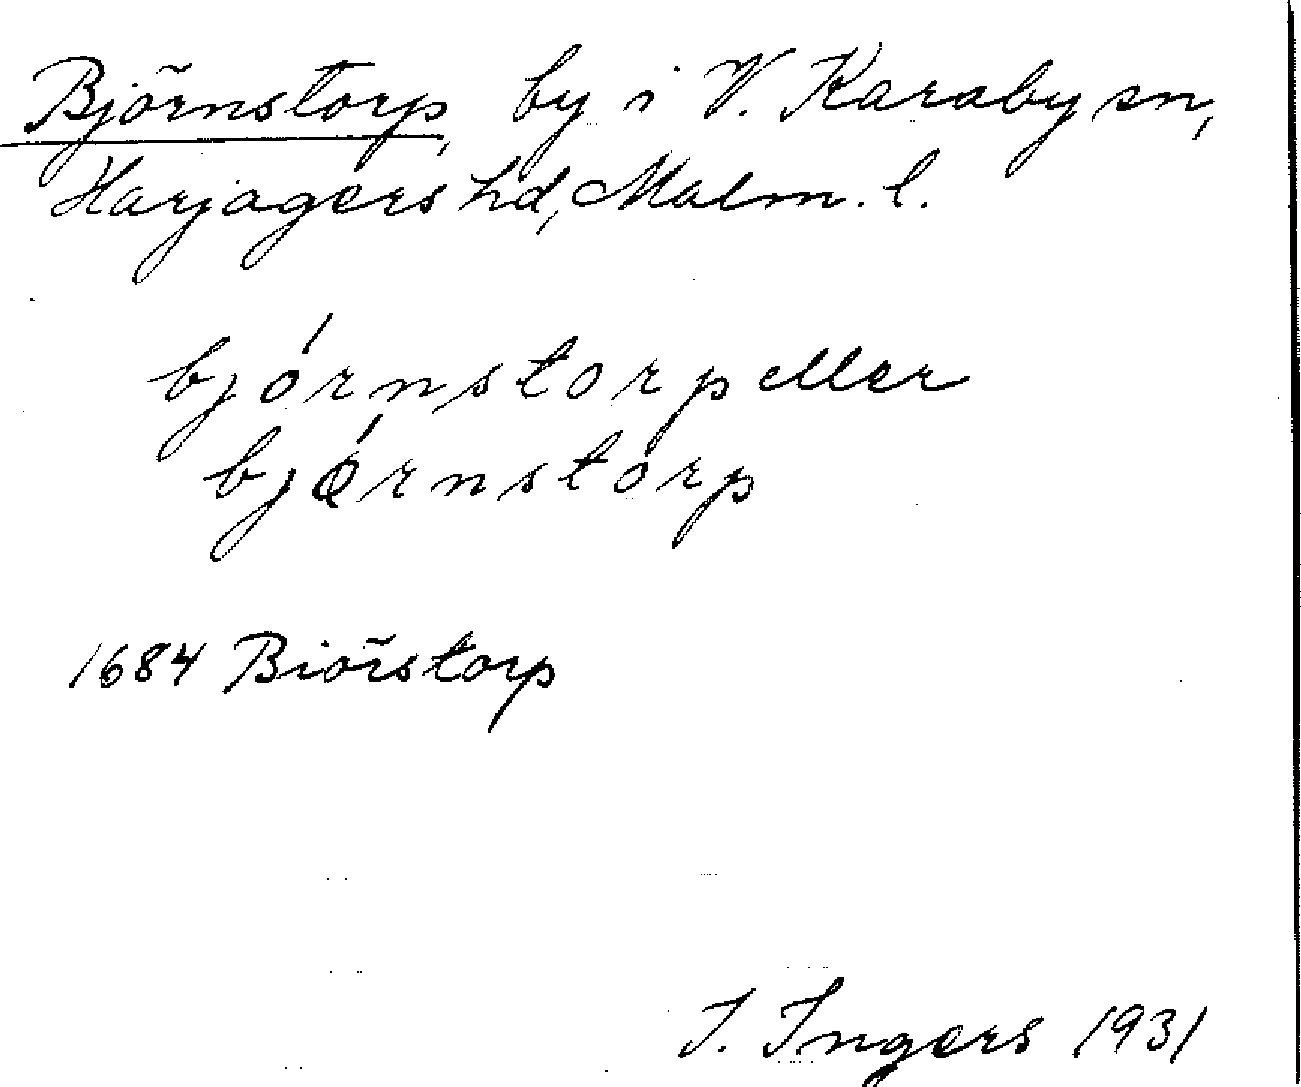 Björnstorp, by i V. Karaby sn,
Harjagers hd, Malm. l.
bjórnstorp eller
bjǿrnstórp
1684 Biörstorp
I. Ingers 1931